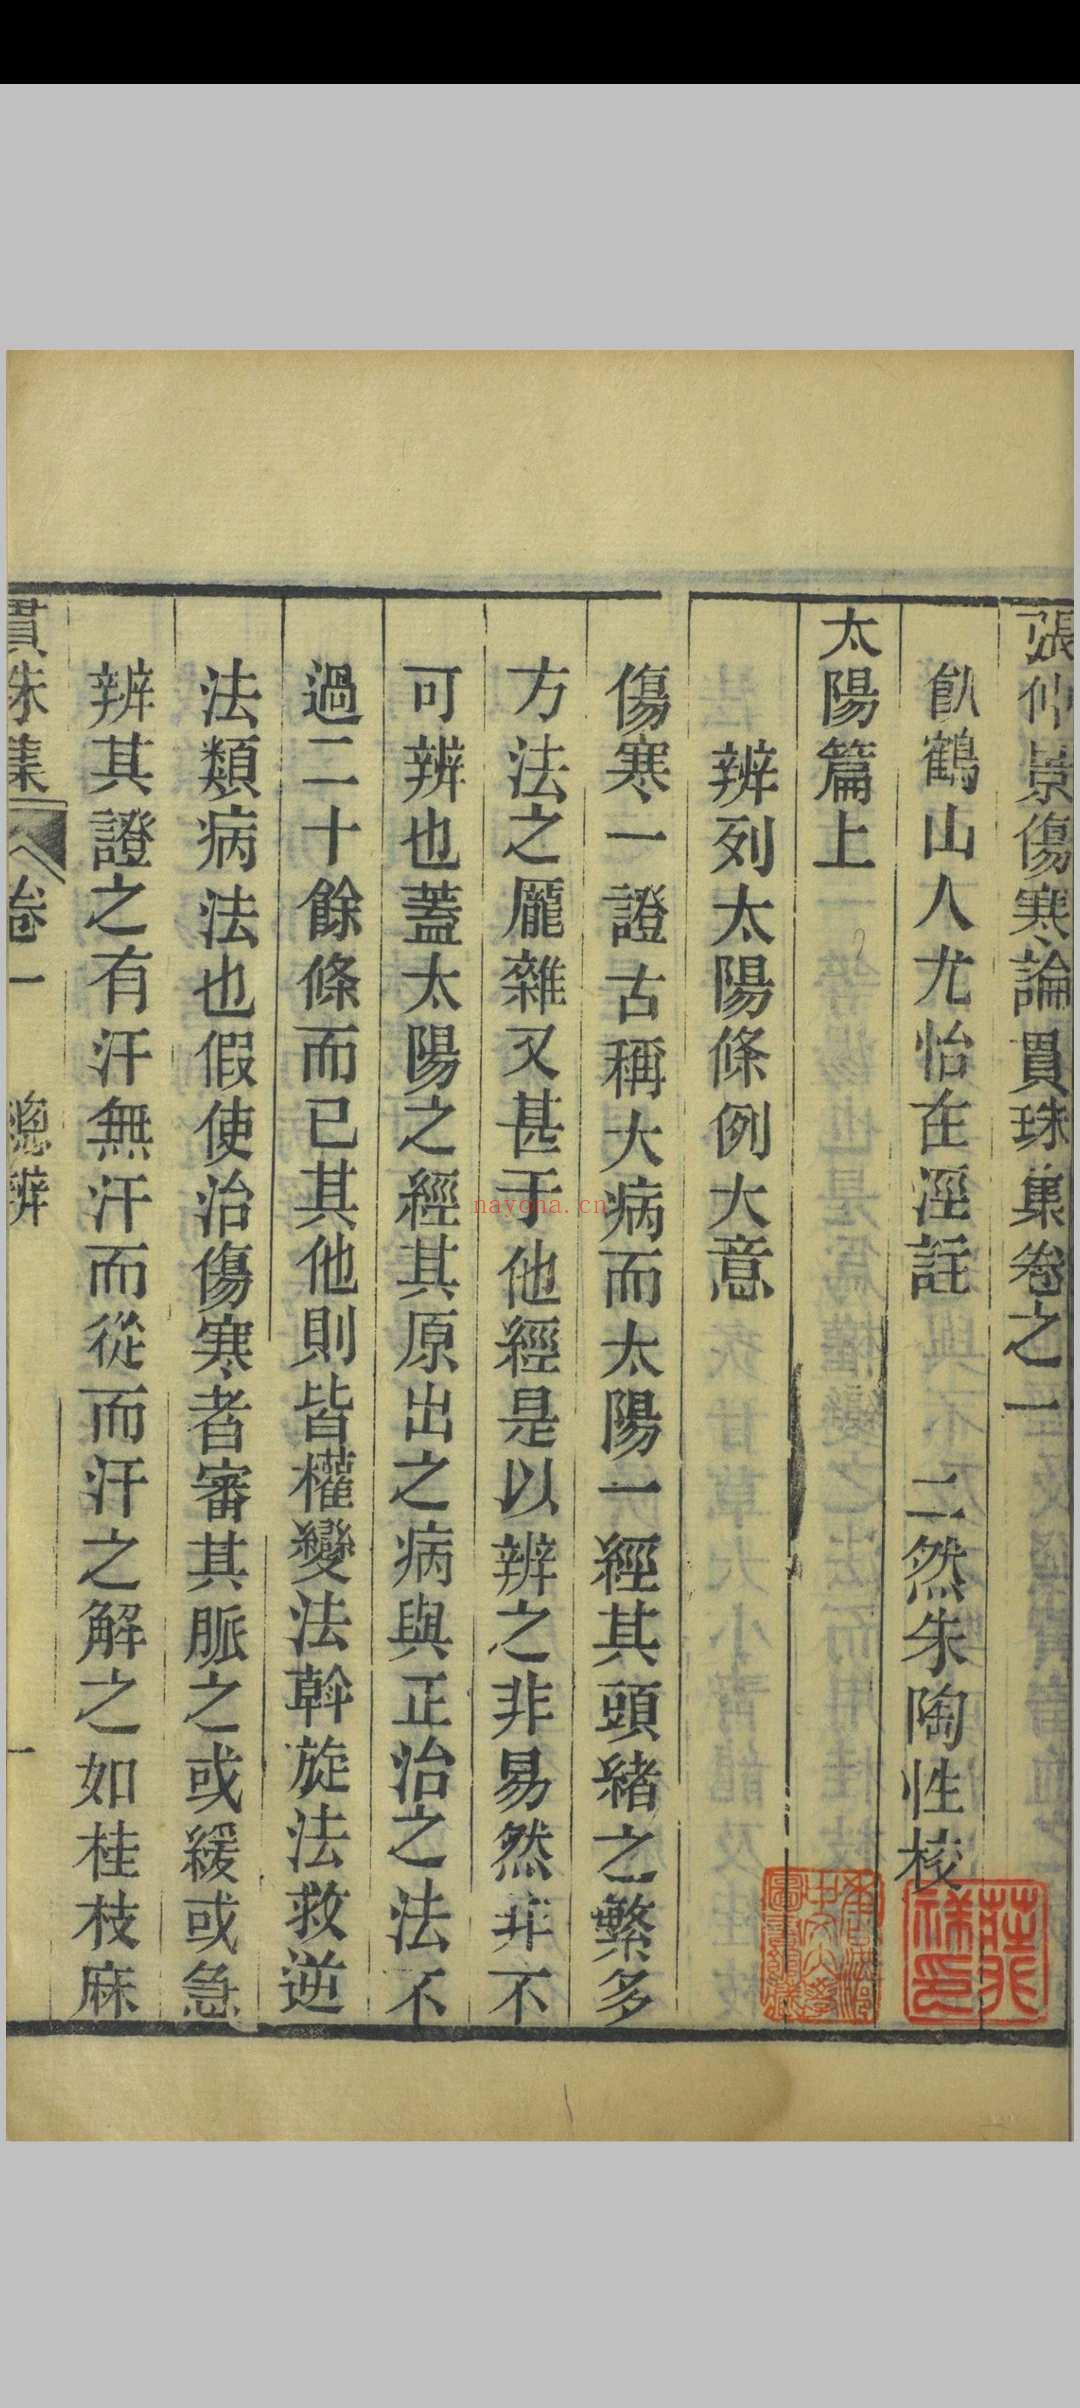 張仲景傷寒論貫珠集卷之一
飲鶴山人尤怡在涇註 二然朱陶性校
太陽篇上
辨列太陽條例大意
傷寒一證古稱大病而太陽一經其頭緒之繁多
方法之龐雜又甚于他經是以辨之非易然非不
可辨也蓋太陽之經其原出之病與正治之法不
過二十餘條而已其他則皆權變法斡旋法救逆
法類病法也假使治傷寒者審其脈之或緩或急
辨其證之有汗無汗而從而汗之解之如桂枝麻
貫珠集 卷一 總辨 一
nayona.cn